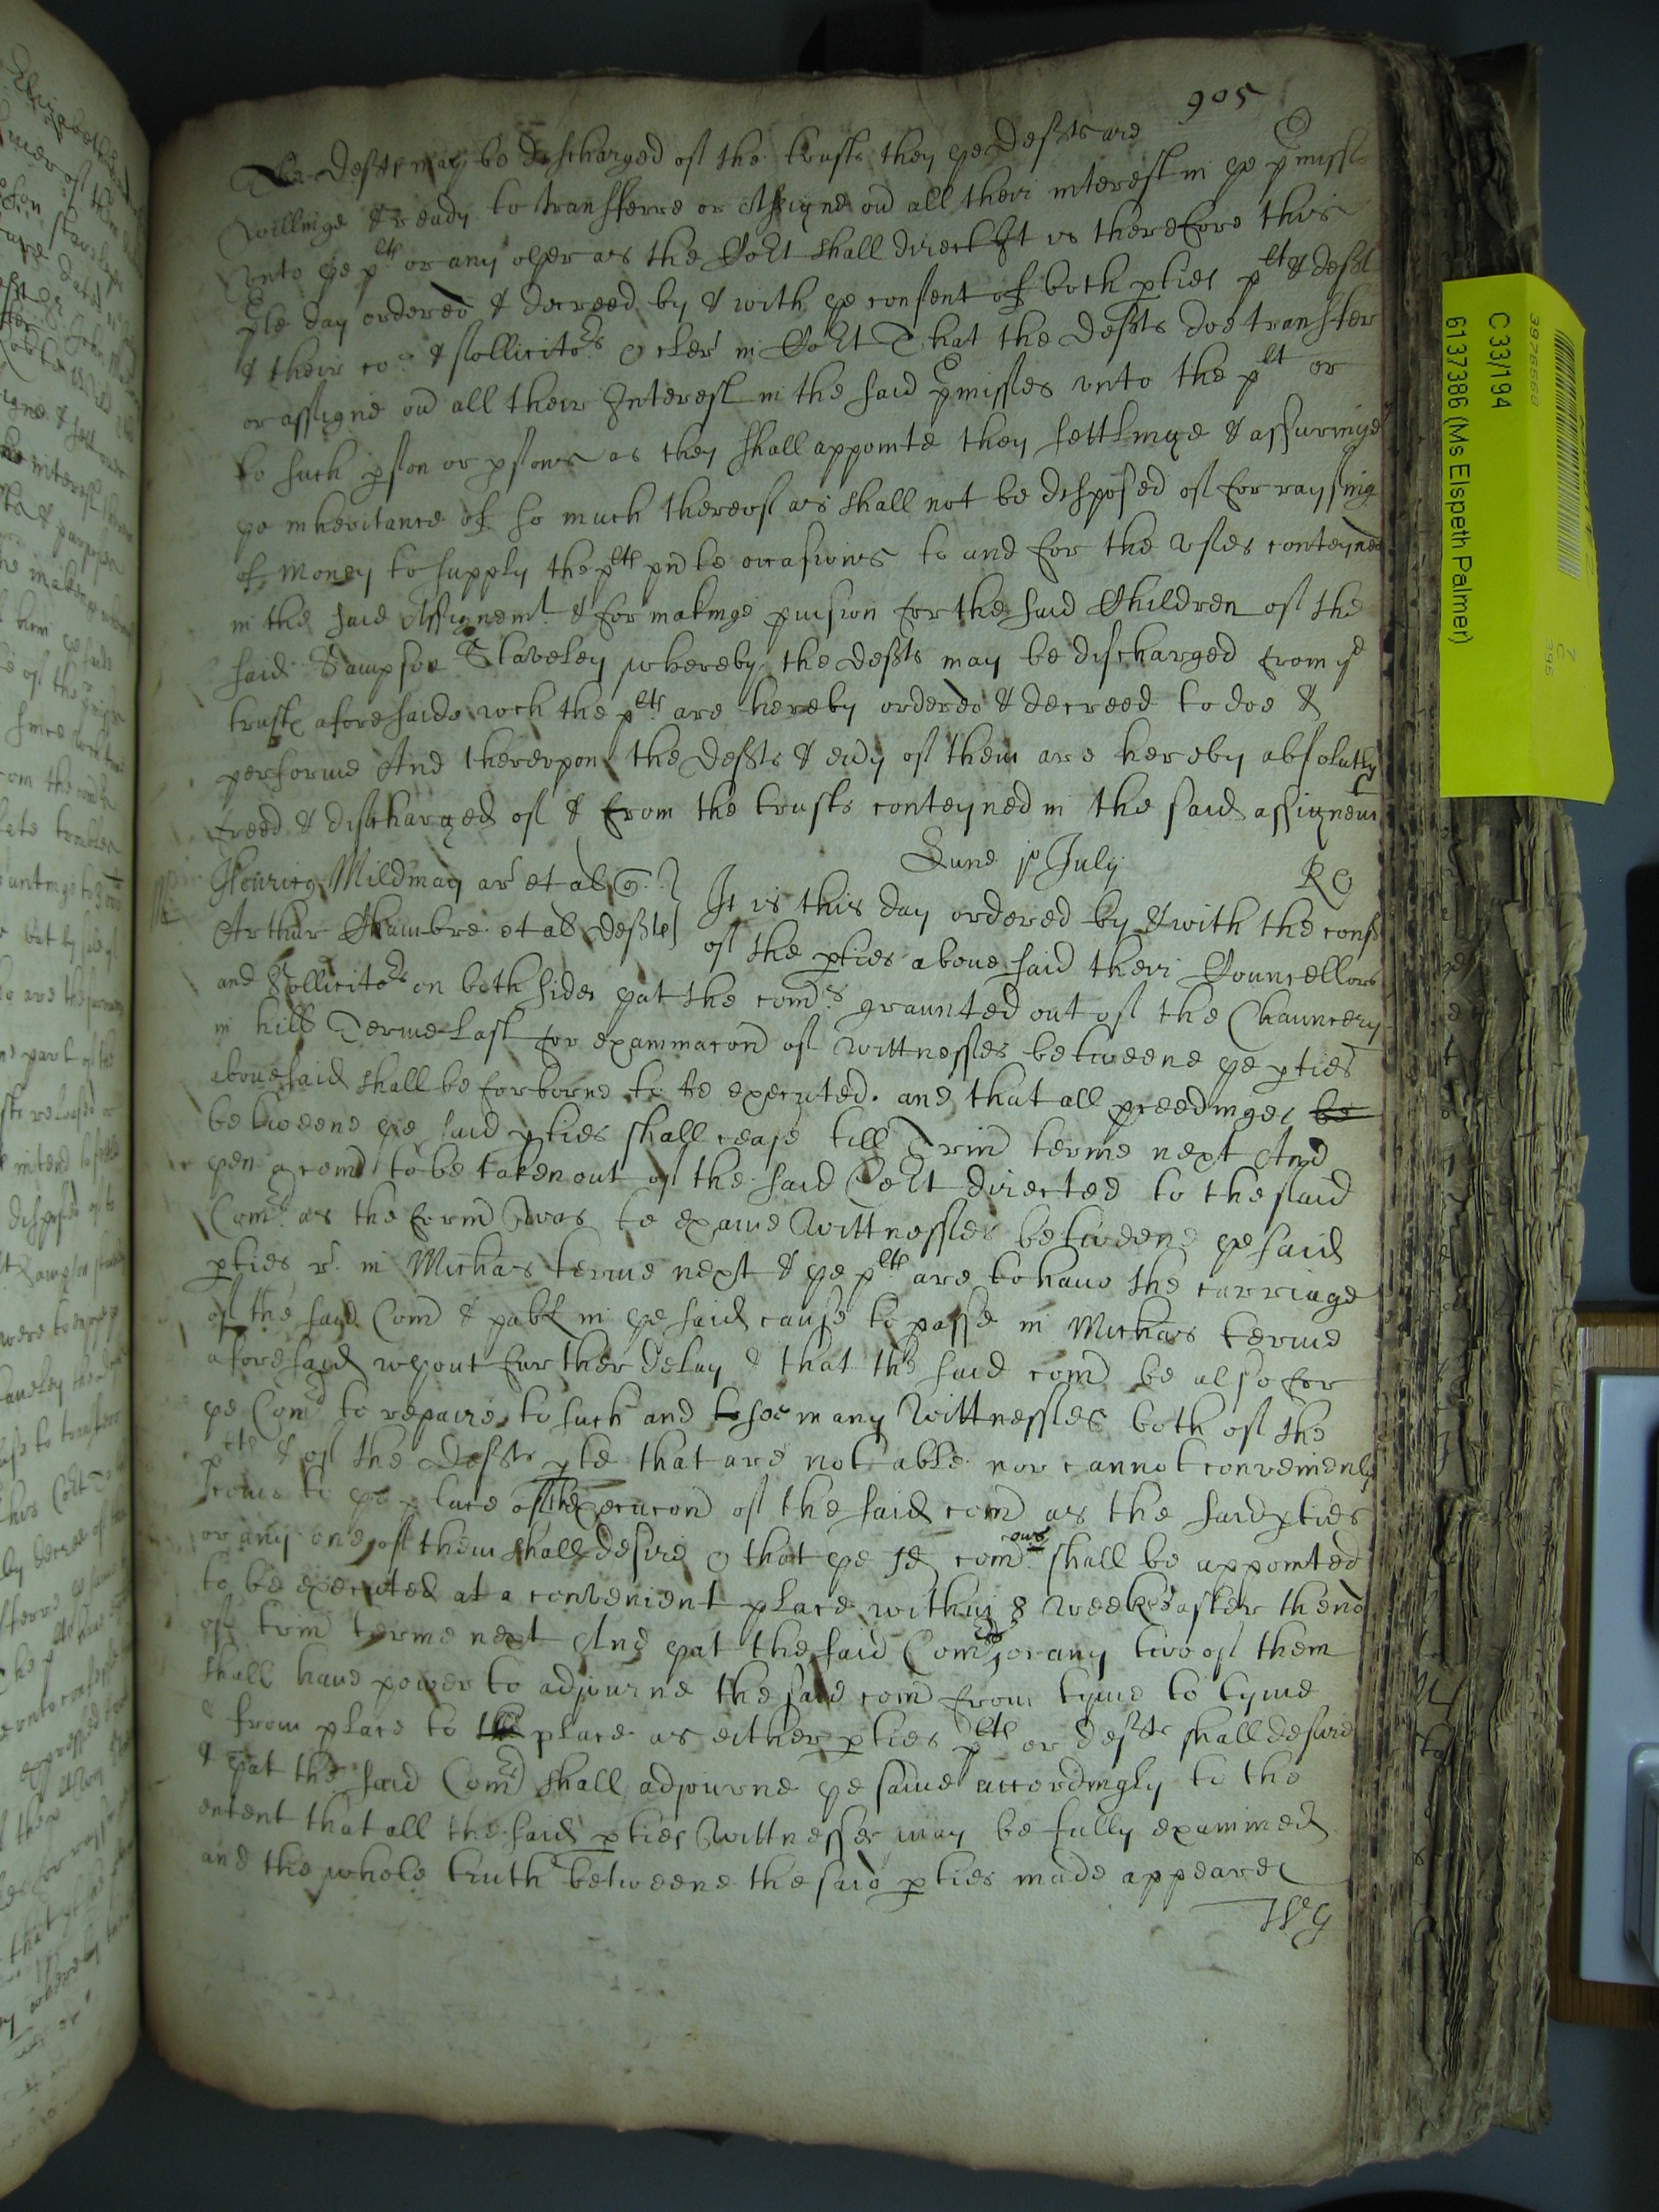 905
The defts may be discharged of the trusts they ye defts are
willinge & ready to transferre or Assigne ou all their interest in ye pmisses
vnto ye plts or any oyer as the Co:rt shall direct It is therefore this
pte day ordered & decreed by & with ye consent of both pties plt & deft
& their co: & sollicito:rs in Co:rt That the Defts doe transfer
or assigne ou all their Interest in the said pmisses vnto the plt or
to such pson or psons as they shall appointe they settlinge & assuringe
ye inheritance of so much thereof as shall not be disposed of for raysing
of money to supply the plts pnte occasions to and for the vses conteyned
in the said Assignemt & for makinge puision for the said Children of the
said Sampson Staveley whereby the Defts may be discharged from ye
trusts aforesaide wch the plts are hereby ordered & decreed to doe &
performe And therevpon the Defts & euy of them are hereby absolutly
freed & discharged of & from the trusts conteyned in the said assignem
Lune jo July
RO
Henricg Mildmay ar et al q
Arthur Chambre et al Defts
It is this day ordered by & with the cons
of the pties aboue said their Councellors
and Sollicito:rs on both sides yat the com:s graunted out of the Chauncery
in hill Terme last for examinacon of Wittnesses betweene ye pties
abouesaid shall be forborne to be executed. and that all pceedinges be
betweene ye said pties shall cease till Trin terme next And
yen a com to be taken out of the said Co:rt directed to the said
Com:rs as the form was to exaie Wittnesses betweene ye said
pties r. in Michas terme next & ye plts are to haue the carriage
of the said Com & publ in ye said cause to passe in Michas terme
aforesaid wyout further delay & that the said com be also for
ye Com:rs to repaire to such and to soe many Wittnesses both of the
plts & of the Defts pte that are not able nor cannot conveniently
come to ye place of the Execucon of the said com as the said pties
or any one of them shall desire & that ye sd com:ons shall be appointed
to be executed at a convenient place within 8 weekes after thend
of trin terme next And yat the said Com:rs or any two of them
shall haue power to adjourne the said com from tyme to tyme
& from place to the place as either pties plts or defts shall desire
& yat the said Com:rs shall adjourne ye same accordingly to the
entent that all the said pties Wittnesses may be fully examined
and the whole truth betweene the said pties made appeare
WG
C 33/194
6137386 (Ms Elspeth Palmer)